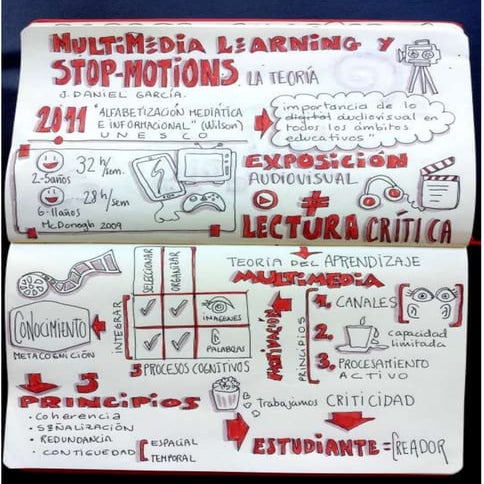 MULTiMEDIA LEARNiNG Y
STOP-MOTIONS LA TEORÍA
J. DANIEL GARCÍA.
2011 "ALFABETIZACIÓN MEDIÁTICA
E INFORMACIONAL" (Wilson)
UNESCO
importancia de lo
digital audiovisual en
todos los ámbitos
educativos"
32 h/sem.
2-5años
28 h/sem
6-11años
McDonogh 2009
EXPOSiCiÓN
AUDIOVISUAL
≠
LECTURA CRÍTICA
TEORÍA DEL APRENDIZAJE
MULTiMEDiA
SELECCIONAR
ORGANIZAR
INTEGRAR
IMÁGENES
PALABRAS
3 PROCESOS COGNITIVOS
CONOCIMIENTO
METACOGNICIÓN
MOTIVACIÓN
PRINCIPIOS
1. CANALES
2. capacidad
limitada
3. PROCESAMIENTO
ACTIVO
5
PRiNCiPiOS
• Coherencia
• SEÑALIZACIÓN
• REDUNDANCIA
• CONTIGUEDAD [ ESPACIAL
TEMPORAL
trabajamos CRITICIDAD
ESTUDIANTE = CREADOR